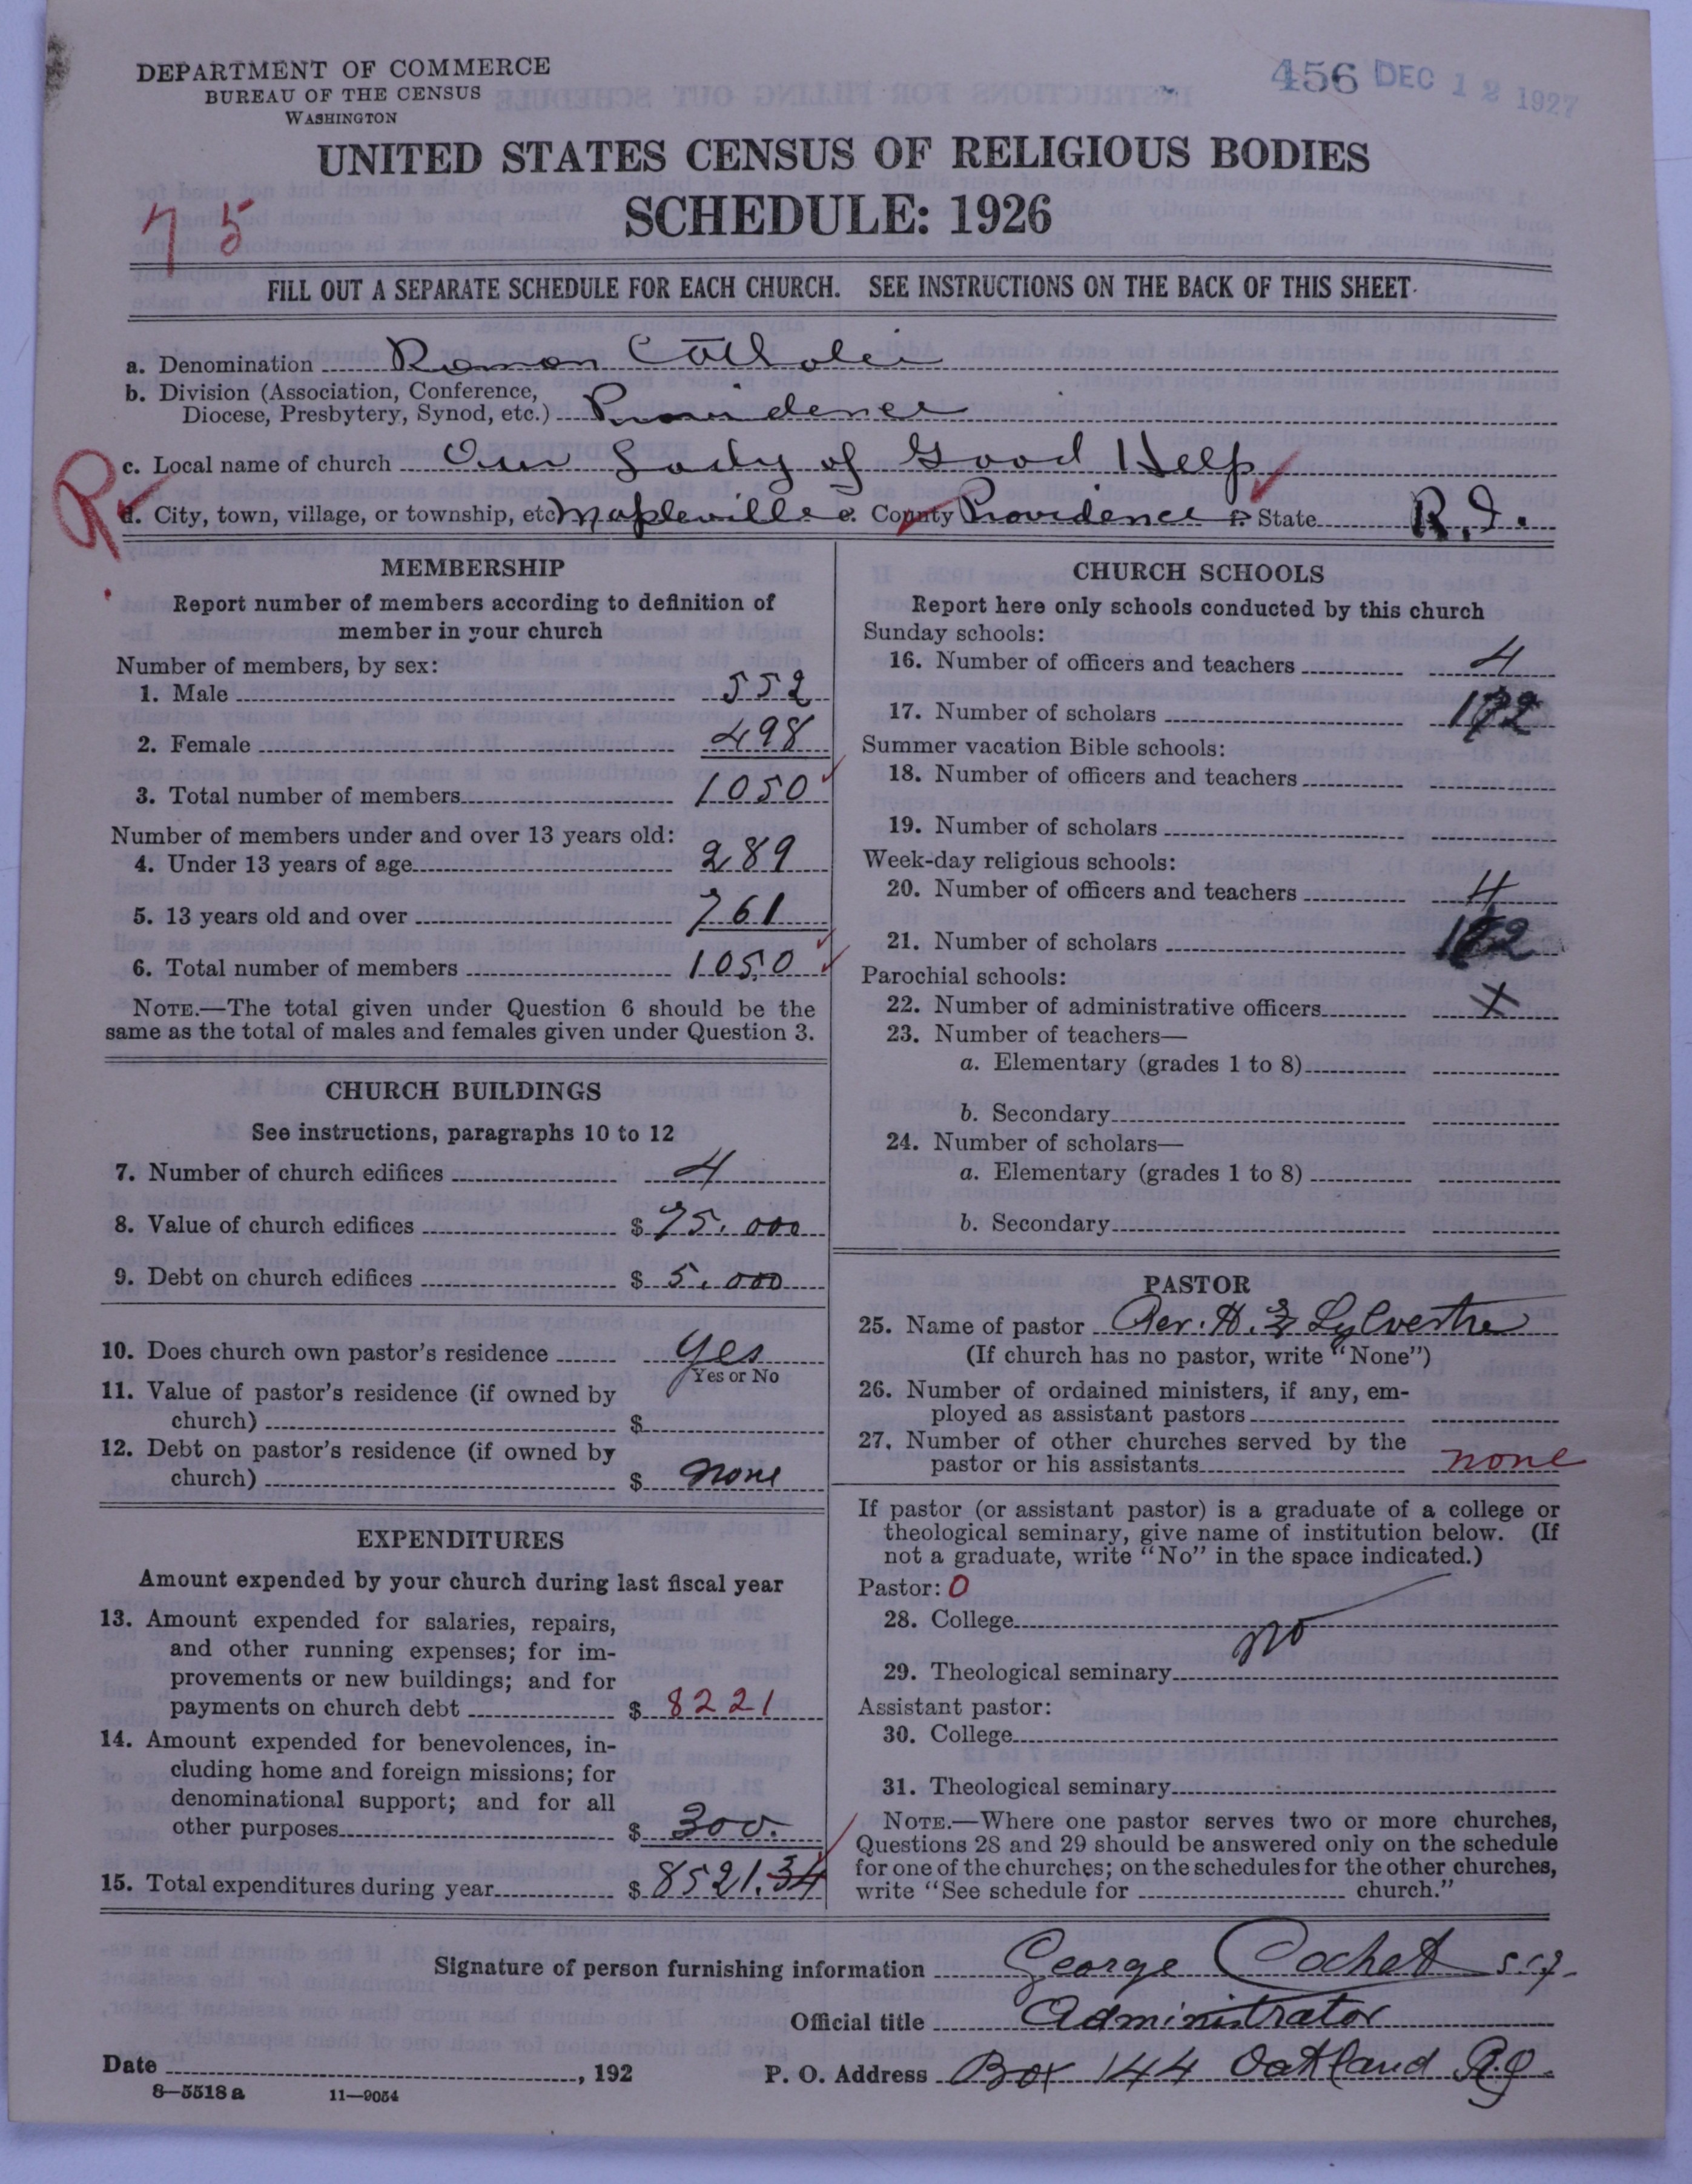 DEPARTMENT OF COMMERCE
BUREAU OF THE CENSUS
WASHINGTON
456 DEC 12 1927
UNITED STATES CENSUS OF RELIGIOUS BODIES
SCHEDULE: 1926
75
FILL OUT A SEPARATE SCHEDULE FOR EACH CHURCH. SEE INSTRUCTIONS ON THE BACK OF THIS SHEET
a. Denomination Roman Catholic
b. Division (Association, Conference,
Diocese, Presbytery, Synod, etc.) Providence
R
c. Local name of church Our Lady of Good Help
d. City, town, village, or township, etc Mapleville e. County Providence f. State R.I.
MEMBERSHIP
Report number of members according to definition of
member in your church
Number of members, by sex:
1. Male 552
2. Female 498
3. Total number of members 1050
Number of members under and over 13 years old:
4. Under 13 years of age 289
5. 13 years old and over 761
6. Total number of members 1050
NOTE.—The total given under Question 6 should be the
same as the total of males and females given under Question 3.
CHURCH BUILDINGS
See instructions, paragraphs 10 to 12
7. Number of church edifices 4
8. Value of church edifices $ 75,000
9. Debt on church edifices $ 5,000
10. Does church own pastor's residence yes
Yes or No
11. Value of pastor's residence (if owned by
church) $
12. Debt on pastor's residence (if owned by
church) $ none
EXPENDITURES
Amount expended by your church during last fiscal year
13. Amount expended for salaries, repairs,
and other running expenses; for im-
provements or new buildings; and for
payments on church debt $ 8221
14. Amount expended for benevolences, in-
cluding home and foreign missions; for
denominational support; and for all
other purposes $ 300.
15. Total expenditures during year $ 8521.34
CHURCH SCHOOLS
Report here only schools conducted by this church
Sunday schools:
16. Number of officers and teachers 4
17. Number of scholars
Summer vacation Bible schools:
18. Number of officers and teachers
19. Number of scholars
Week-day religious schools:
20. Number of officers and teachers 4
21. Number of scholars
Parochial schools:
22. Number of administrative officers X
23. Number of teachers—
a. Elementary (grades 1 to 8)
b. Secondary
24. Number of scholars—
a. Elementary (grades 1 to 8)
b. Secondary
PASTOR
25. Name of pastor Rev. H. Sylvestre
(If church has no pastor, write "None")
26. Number of ordained ministers, if any, em-
ployed as assistant pastors
27. Number of other churches served by the
pastor or his assistants none
If pastor (or assistant pastor) is a graduate of a college or
theological seminary, give name of institution below. (If
not a graduate, write "No" in the space indicated.)
Pastor: 0
28. College
no
29. Theological seminary
Assistant pastor:
30. College
31. Theological seminary
NOTE.—Where one pastor serves two or more churches,
Questions 28 and 29 should be answered only on the schedule
for one of the churches; on the schedules for the other churches,
write "See schedule for church."
Signature of person furnishing information George Cochet
Official title Administrator
Date , 192 P. O. Address Box 144 Oakland R.I.
8—5518 a 11—9054